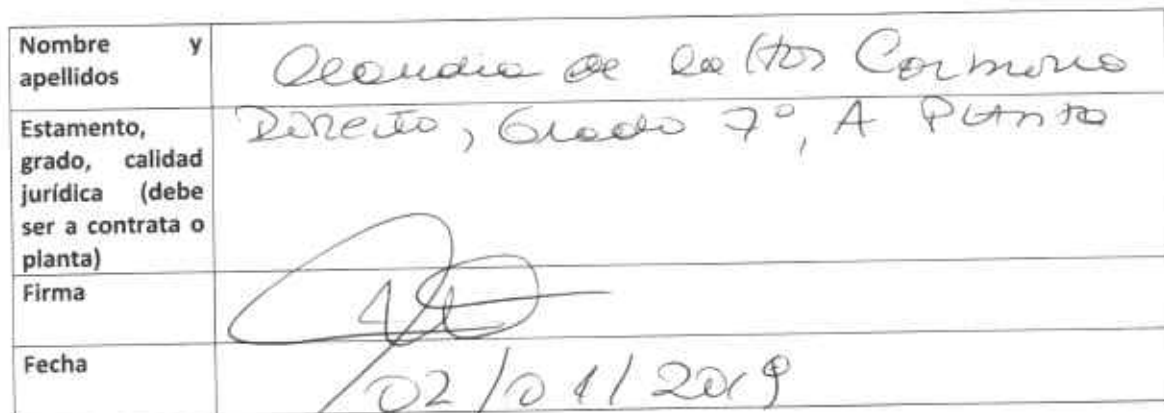 Nombre y
apellidos
Claudia de la
Estamento,
grado, calidad
jurídica (debe
ser a contrata o
planta)
Directivo, Grado 7°, A Planta
Firma
Fecha
02/01/2019